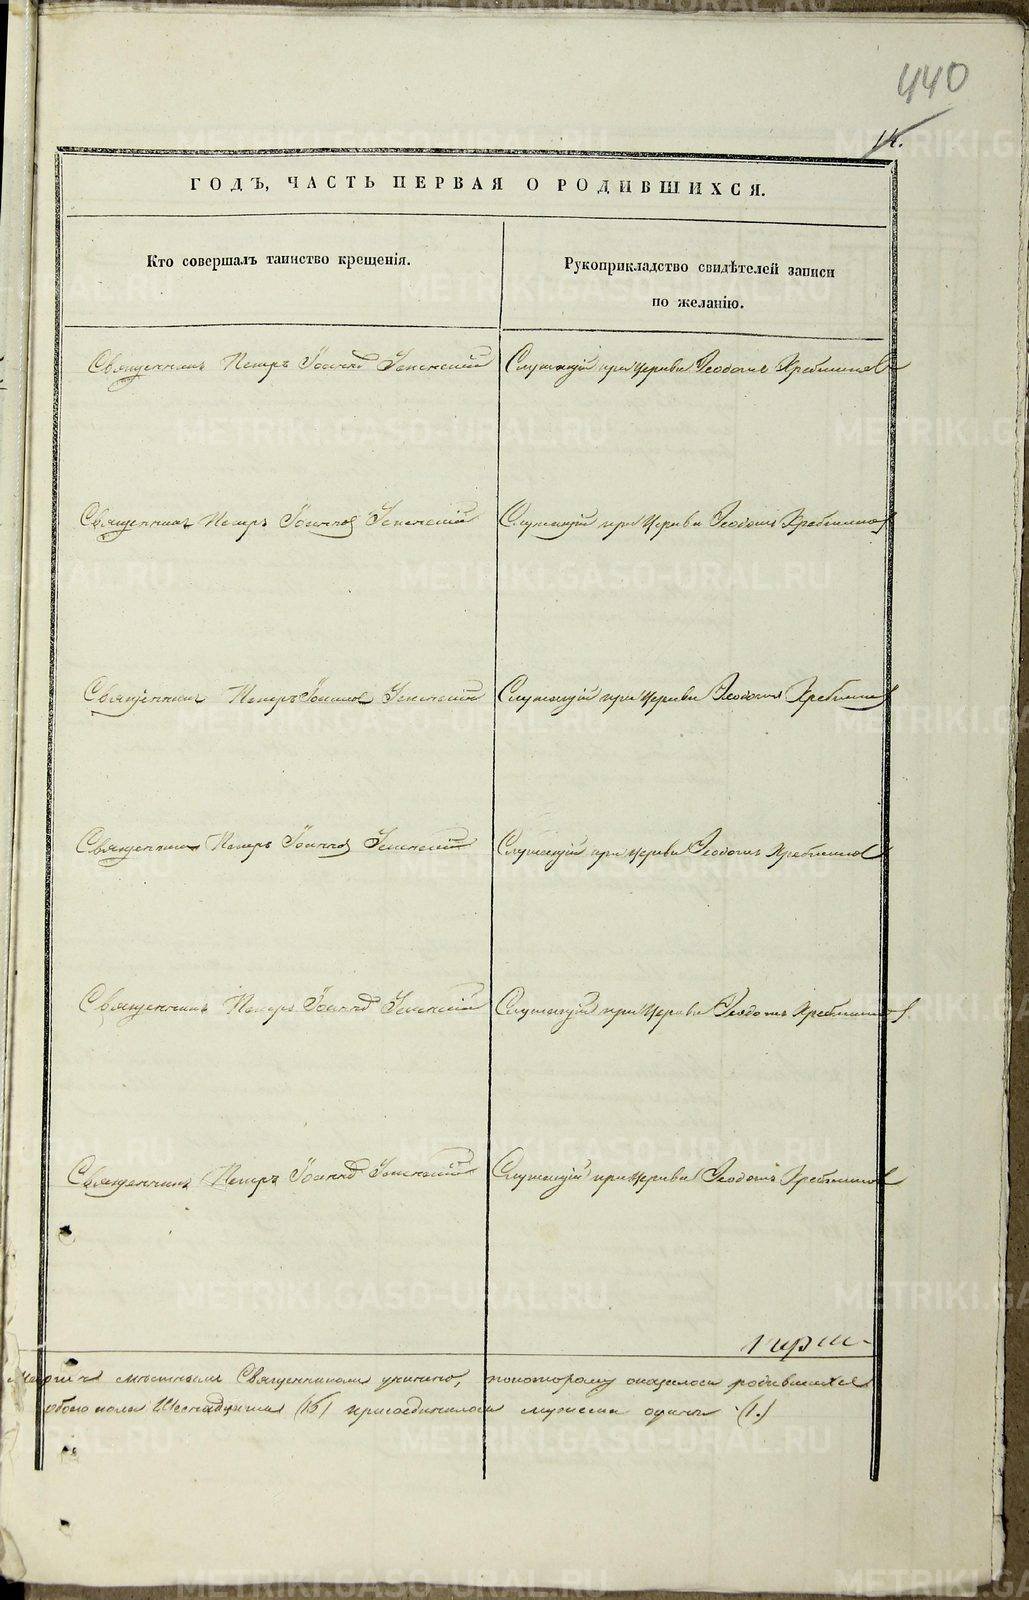 440
14.
ГОДЪ, ЧАСТЬ ПЕРВАЯ О РОДИВШИХСЯ.
Кто совершалъ таинство крещенія.
Рукоприкладство свидѣтелей записи
по желанію.
Священникъ Петръ Іоаннов Успенскій
Служащій при Церкви Феодотъ
Священникъ Петръ Іоаннов Успенскій
Служащій при Церкви Феодотъ
Священникъ Петръ Іоаннов Успенскій
Служащій при Церкви Феодотъ
Священникъ Петръ Іоаннов Успенскій
Служащій при Церкви Феодотъ
Священникъ Петръ Іоаннов Успенскій
Служащій при Церкви Феодотъ
Священникъ Петръ Іоаннов Успенскій
Служащій при Церкви Феодотъ
мѣстнымъ Священникомъ учинено, по которому оказалось родившихся
обоего пола Шестнадцать (16) присоединилось мужеска одинъ (1.)
METRIKI.GASO-URAL.RU